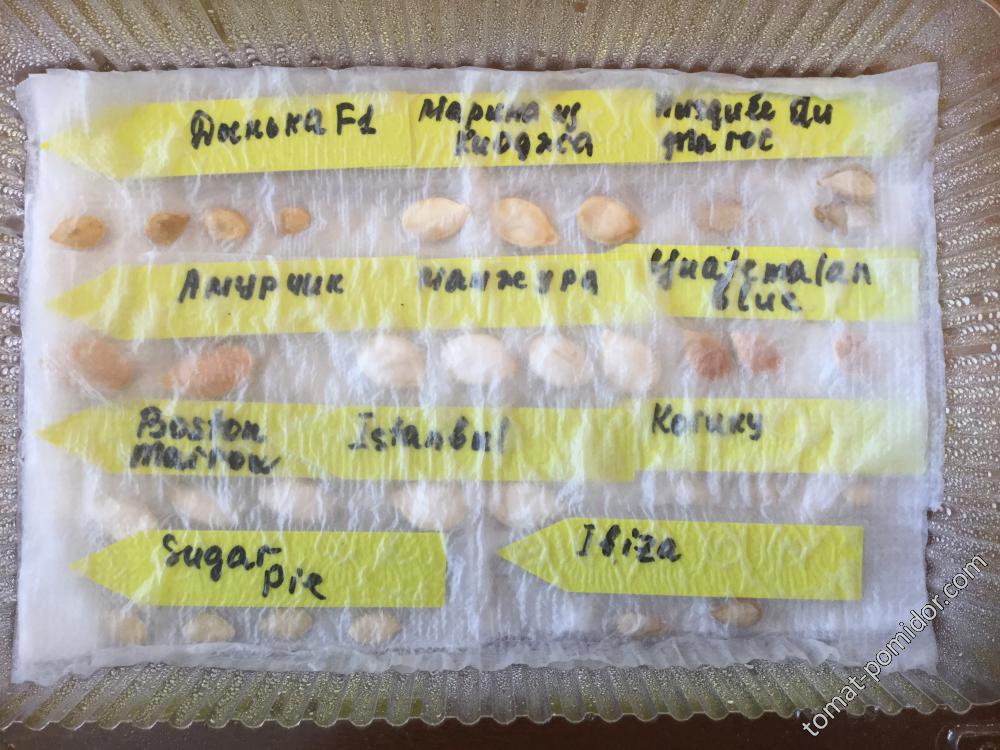 Дынька F1
Марина из
Киоджа
Musquée Du
Maroc
Амурчик
Манжура
Guatemalan
blue
Boston
Marrow
Istanbul
Kogiky
Sugar
Pie
Ibiza
tomat-pomidor.com